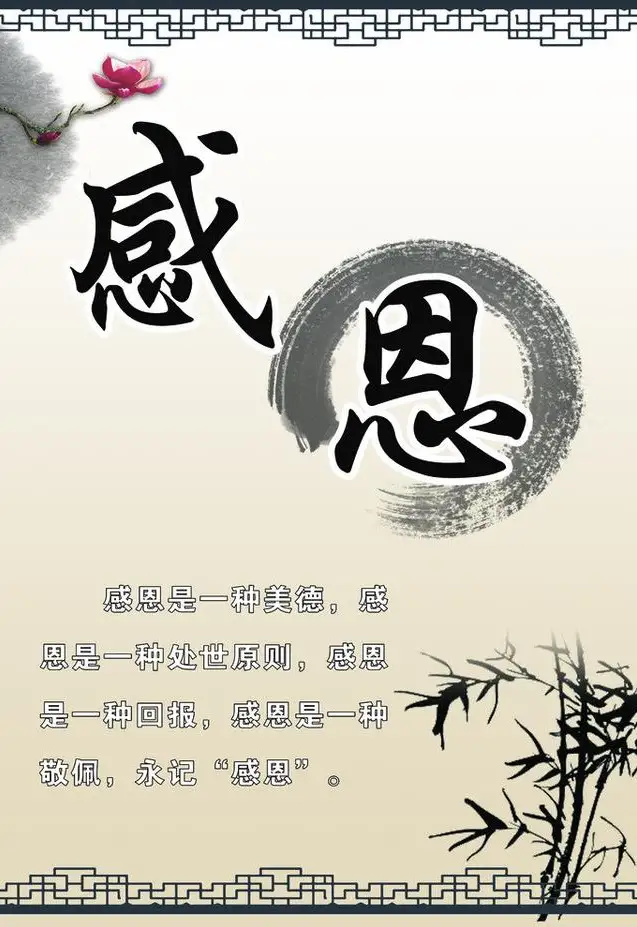 感恩
感恩是一种美德，感
恩是一种处世原则，感恩
是一种回报，感恩是一种
敬佩，永记“感恩”。